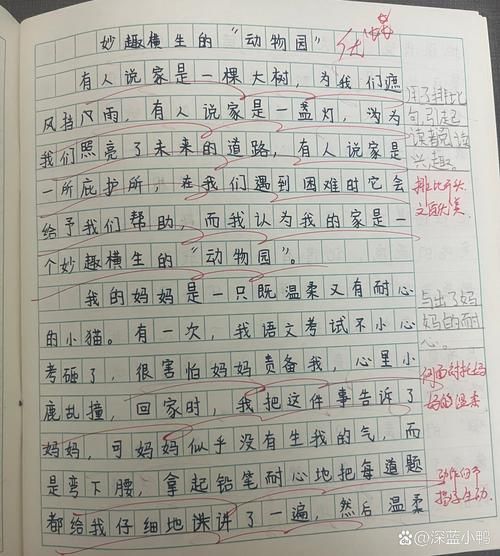 妙趣横生的“动物园”
有人说家是一棵大树，为我们遮
风挡雨，有人说家是一盏灯，为
我们照亮了未来的道路，有人说家是
一所庇护所，在我们遇到困难时它会
给予我们帮助，而我认为我的家是一
个妙趣横生的“动物园”。
我的妈妈是一只既温柔又有耐心
的小猫。有一次，我语文考试不小心
考砸了，很害怕妈妈责备我，心里小
鹿乱撞，回家时，我把这件事告诉了
妈妈，可妈妈似乎没有生我的气，而
是弯下腰，拿起铅笔耐心地把每道题
都给我仔细地讲了一遍，然后温柔
用了排比
句，引起
读者阅读
兴趣。
排比开头
文首点美
写出了妈
妈的耐
心。
侧面衬托妈
妈的温柔
动作细节
描写生动
@深蓝小鸭